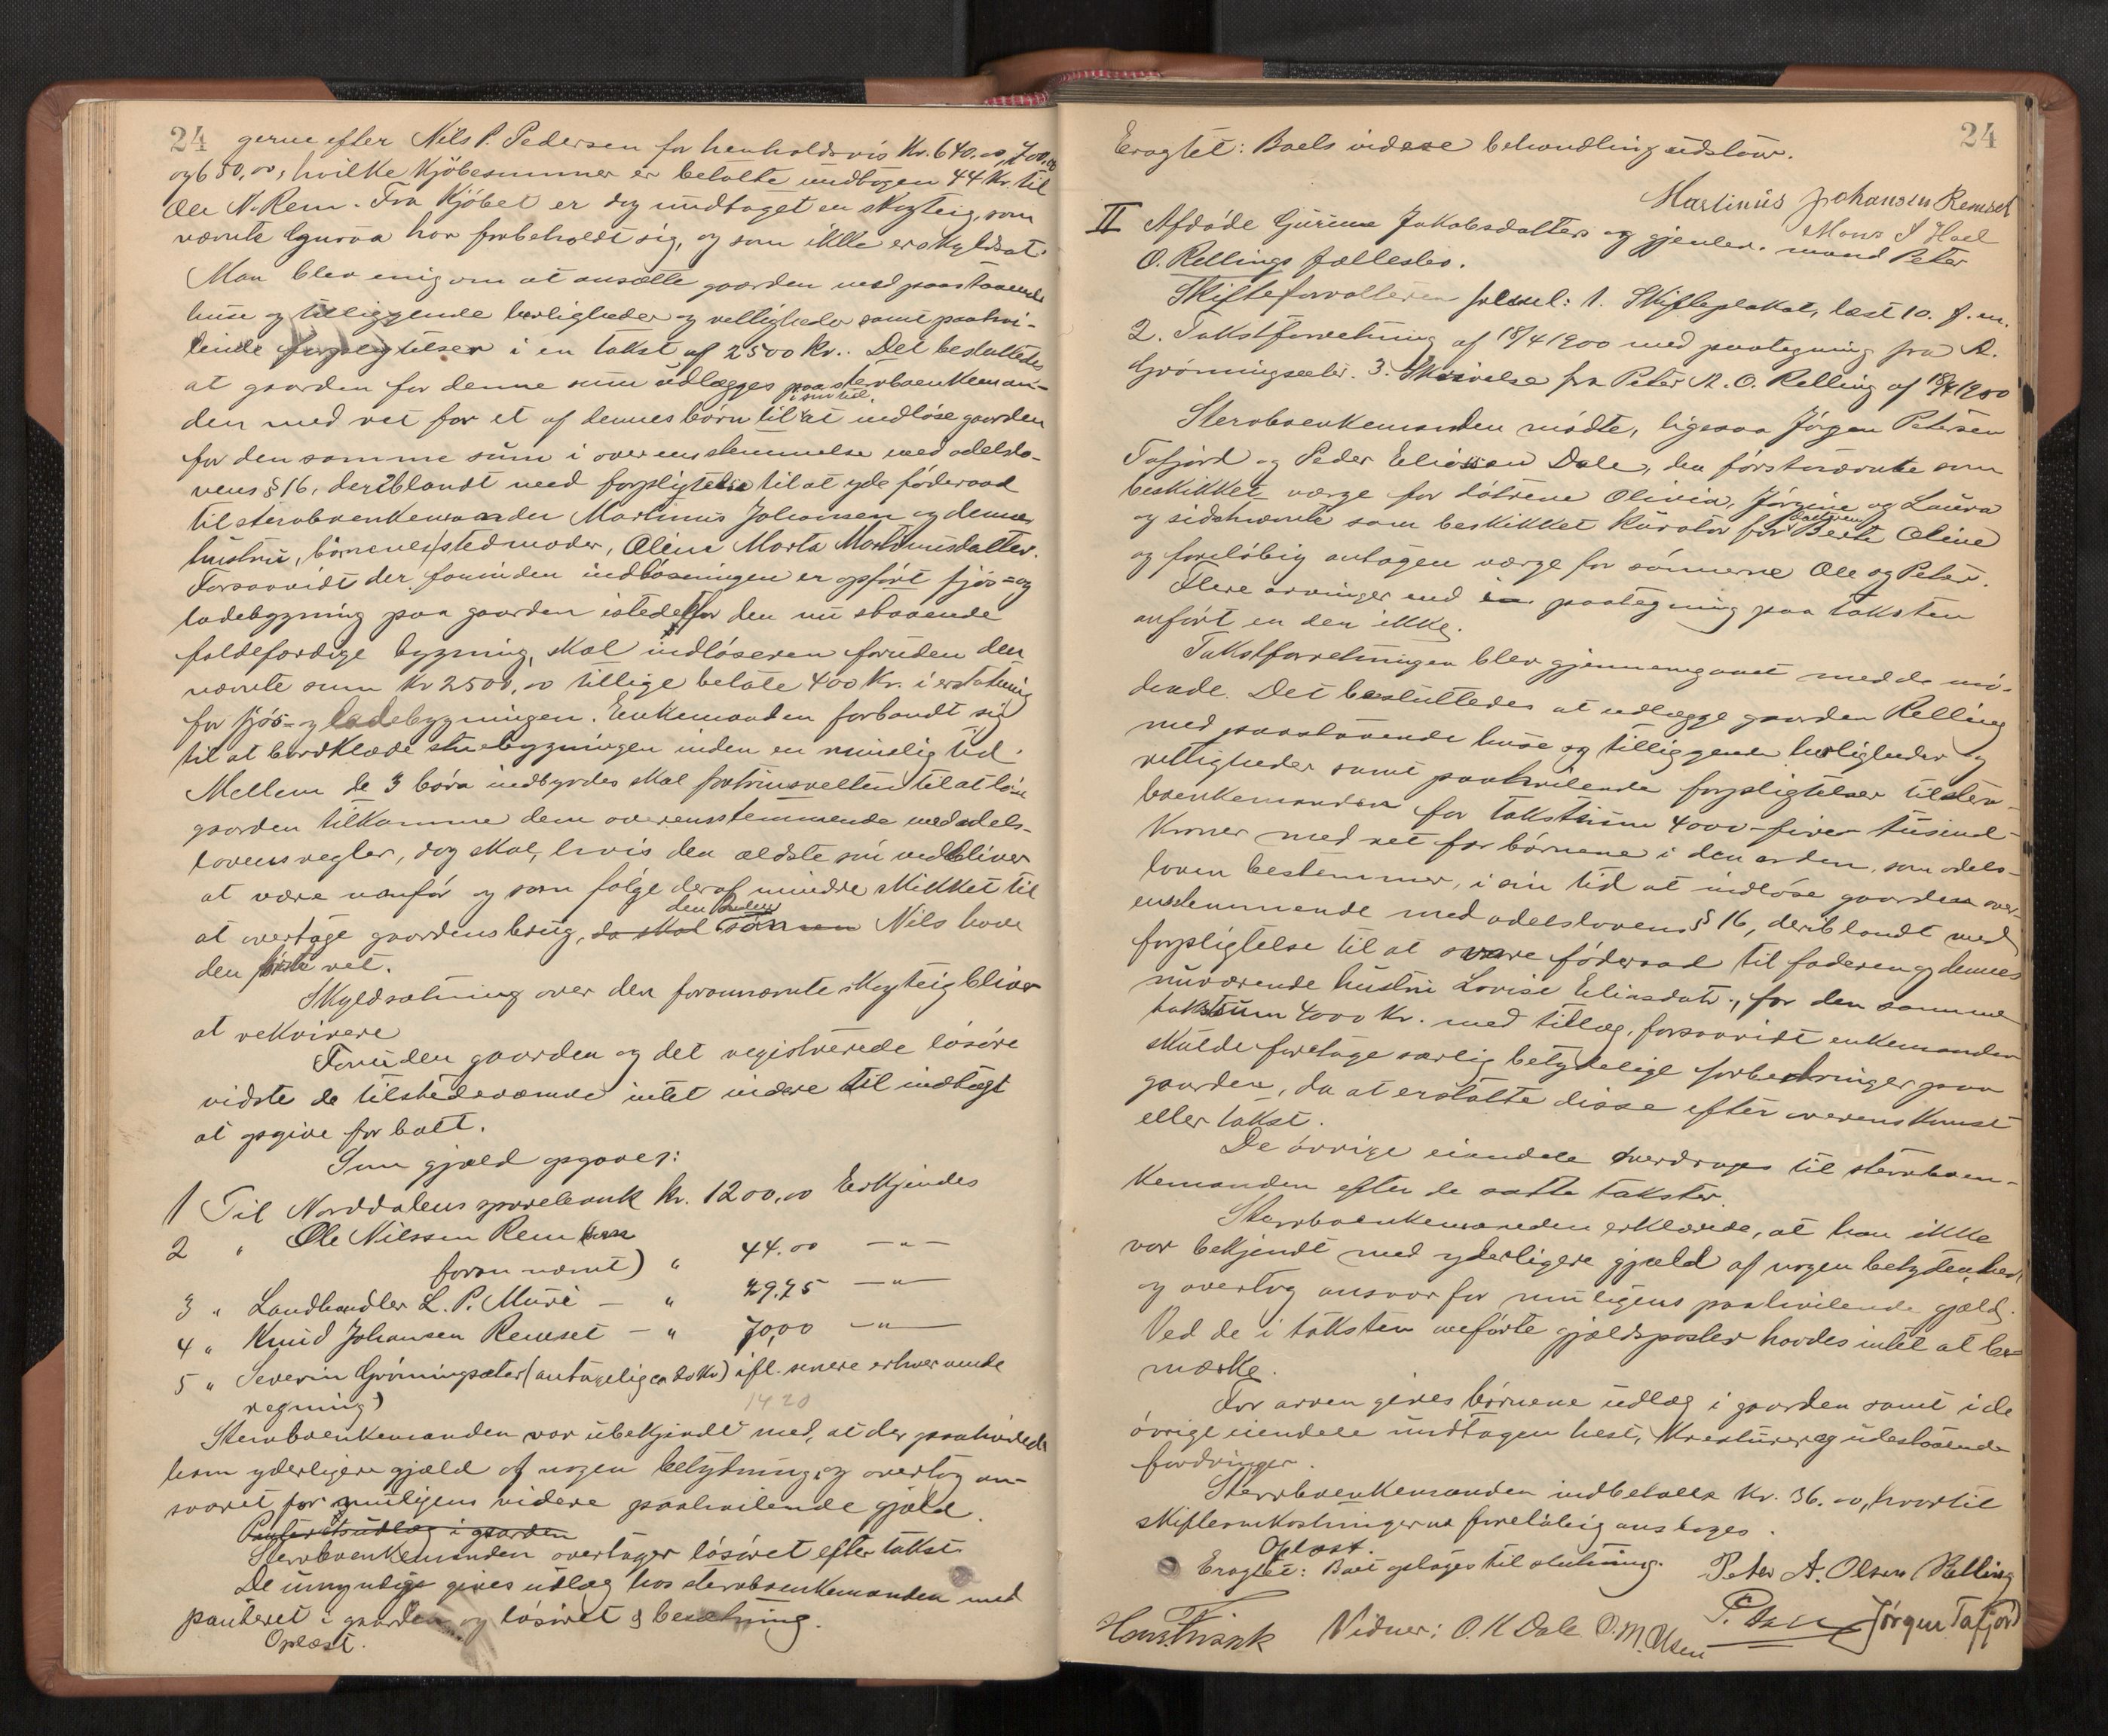 24
gerne efter Nils P. Pedersen for henholdsvis Kr. 640.00, 700.00
og 650,00, hvilke Kjöbesummer er betalte undtagen 44 Kr. til
Ole N. Rem. Fra Kjöbet er dog undtaget en skogteig, som
nævnte Gurova har forbeholdt sig, og som ikke er skyldsat.
Man blev enig om at ansætte gaarden med paastaaende
huse og tilliggende herligheder og rettigheder samt paahvi-
lende forpligtelser i en takst af 2500 Kr.. Det besluttedes
at gaarden for denne sum udlægges paa sterboenkeman-
den med ret for et af dennes børn til i sin tid at indlöse gaarden
for den samme sum i overensstemmelse med odelslo-
vens § 16, deriblandt med forpligtelse til at yde föderaad
til sterboenkemanden Martinus Johansen og dennes
hustru, börnenes stedmoder, Oline Marta Martinusdatter.
Forsaavidt der forinden indlösningen er opfört fjös- og
ladebygning paa gaarden istedetfor den nu staaende
faldefærdige bygning, skal indlöseren foruden den
nævnte sum Kr 2500,00 tillige betale 400 Kr. i erstatning
for fjös- og ladebygningen. Enkemanden forbandt sig
til at bordklæde stuebygningen inden en rimelig tid.
Mellem de 3 börn indbyrdes skal fortrinsretten til at löse
gaarden tilkomme dem overensstemmende med odels-
lovens regler, dog skal, hvis den ældste sön vedbliver
at være vanför og som fölge deraf mindre skikket til
at overtage gaardens brug, da skal sönnen den anden Nils have
den første ret.
Skyldsætning over den forannævnte skogteig bliver
at rekvirere
Foruden gaarden og det registrerede lösöre
vidste de tilstedeværende intet videre til indtægt
at opgive for boet.
Som gjæld opgaves:
1 Til Norddalens sparebank kr. 1200,00 Erkjendes
2 " Ole Nilssen Rem (se
foran nævnt) " 44.00 —"—
3 " Landhandler L. P. Muri — " 29,75 —"—
4 " Knud Johansen Remset — " 70,00 —"—
5 " Severin Grönningsæter (antagelig ca 20 Kr) ifl. senere erhvervende
regning)
1420
Sterboenkemanden var ubekjendt med, at der paahvilede
ham yderligere gjæld af nogen betydning, og overtog an-
svaret for muligens videre paahvilende gjæld.
Panteretsudlæg i gaarden
Sterboenkemanden overtager lösöret efter takst
De umyndige gives udlæg hos sterboenkemanden med
panteret i gaarden og lösöret & besætning.
Oplæst.
24
Eragtet: Boets videre behandling udstaar.
Martinus Johansen Remset
Mons S Hoel
II Afdöde Gurine Jakobsdatters og gjenlev. mand Peter
O. Rellings fællesbo.
Skifteforvalteren freml: 1. Skifteplakat, læst 10. f. m.
2. Takstforretning af 18/4 1900 med paategning fra A.
Grönningsæter. 3. Skrivelse fra Peter A. O. Relling af 18/4 1900
Sterboenkemanden mödte, ligesaa Jörgen Petersen
Tafjord og Peder Eliassen Dale, den förstnævnte som
beskikket værge for dötrene Olivia, Jörgine og Laura
og sidstnævnte som beskikket kurator for datteren Berte Oline
og foreløbig antagen værge for sönnerne Ole og Peter.
Flere arvinger end i paategning paa taksten
anfört er der ikke.
Takstforretningen blev gjennemgaaet med de mö-
dende. Det besluttedes at udlægge gaarden Relling
med paastaaende huse og tilliggende herligheder og
rettigheder samt paahvilende forpligtelser til ster-
boenkemanden for takstsum 4000 - firer tusind -
Kroner med ret for börnene i den orden, som odels-
loven bestemmer, i sin tid at indlöse gaarden over-
ensstemmende med odelslovens § 16, deriblandt med
forpligtelse til at svare föderaad til faderen og dennes
nuværende hustru Lovise Eliasdatr., for den samme
takstsum 4000 Kr. med tillæg, forsaavidt enkemanden
skulde foretage særlig betydelige forbedringer paa
gaarden, da at erstatte disse efter overenskomst
eller takst.
De övrige eiendele overdrages til sterboen-
kemanden efter de satte takster.
Sterboenkemanden erklærede, at han ikke
var bekjendt med yderligere gjæld af nogen betydenhed,
og overtog ansvar for muligens paahvilende gjæld.
Ved de i taksten anförte gjældsposter havdes intet at be-
mærke.
For arven gives börnene udlæg i gaarden samt i de
övrige eiendele undtagen hest, kreaturer og udestaaende
fordringer.
Sterboenkemanden indbetaler Kr. 36.00, hvortil
skifteomkostningerne foreløbig ansloges.
Oplæst.
Eragtet: Boet optages til slutning.
Peter A. Olsen Relling
P. Dale Jörgen Tafjord
Vidner: O. K Dale O. M. Olsen